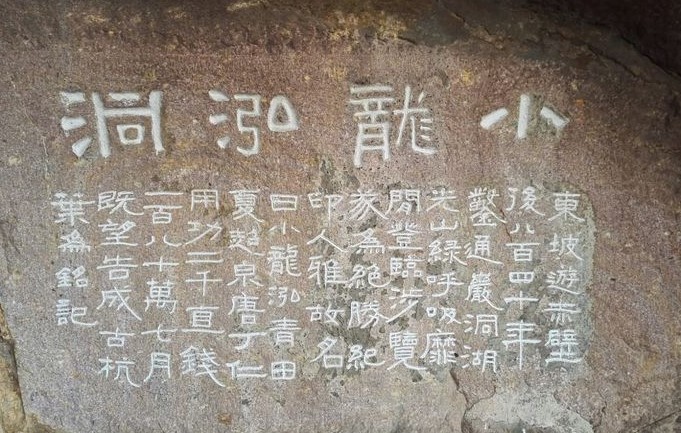 小龍泓洞
東坡遊赤壁
後八百四十年
鑿通巖洞湖
光山綠呼吸靡
閒登臨涉覽
遂為絕勝紀
印人雅故名
曰小龍泓青田
夏超泉唐丁仁
用功二千直錢
一百八十萬七月
既望告成古杭
葉為銘記